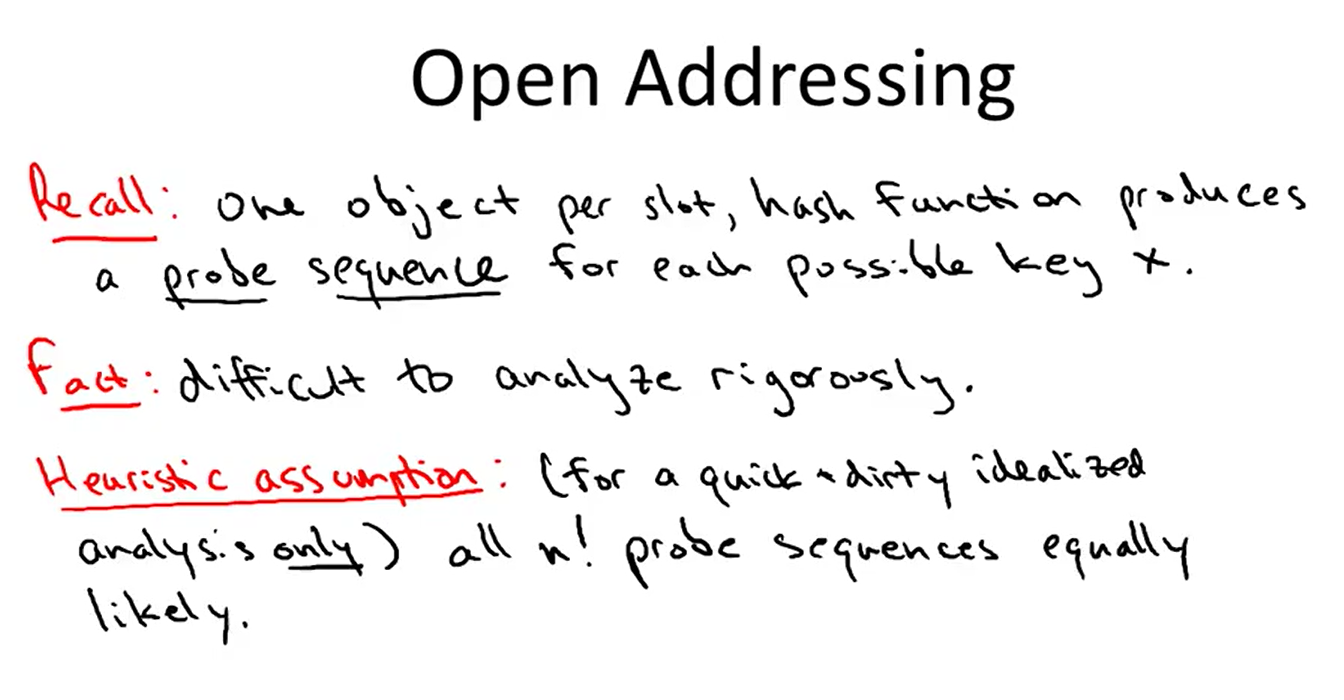 Open Addressing
Recall: one object per slot, hash function produces
a probe sequence for each possible key x.
Fact: difficult to analyze rigorously.
Heuristic assumption: (for a quick + dirty idealized
analysis only) all n! probe sequences equally
likely.